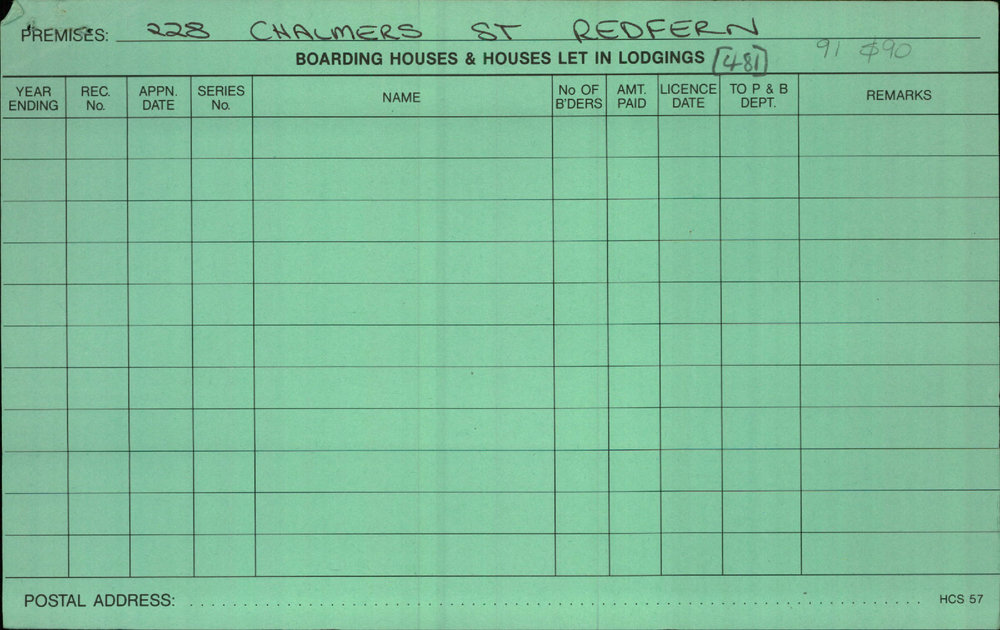 PREMISES: 228 CHALMERS ST REDFERN
BOARDING HOUSES & HOUSES LET IN LODGINGS [481] 91 $90
YEAR ENDING REC. No. APPN. DATE SERIES No. NAME No OF B'DERS AMT. PAID LICENCE DATE TO P & B DEPT. REMARKS
POSTAL ADDRESS: HCS 57